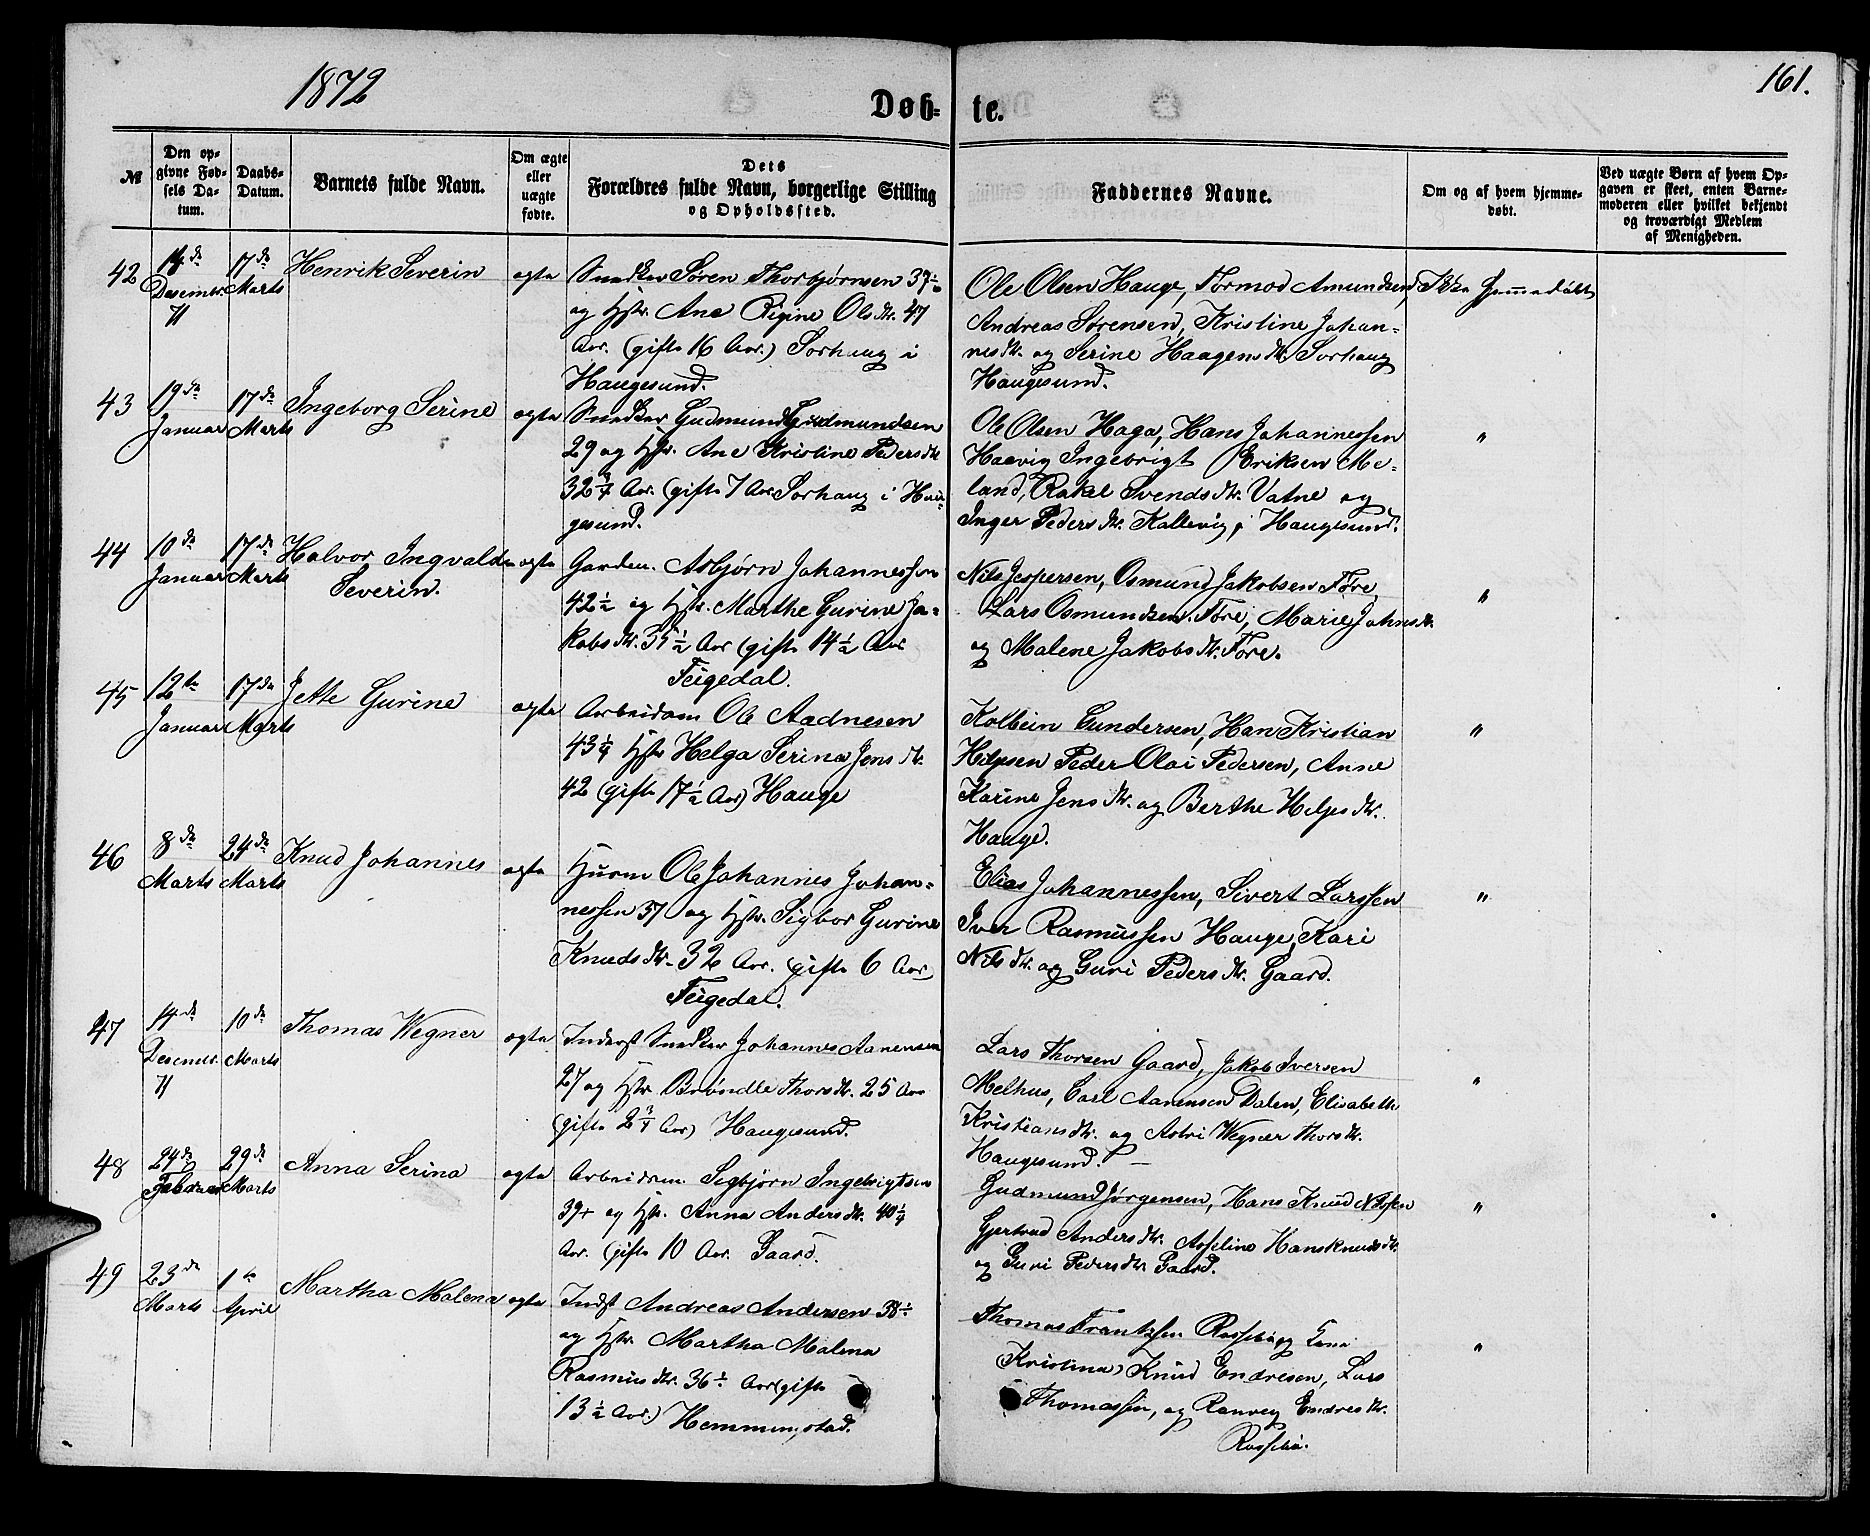 1872
Døb-
te.
161.
№
Den op-
givne Fød-
sels Da-
tum.
Daabs-
Datum.
Barnets fulde Navn.
Om ægte
eller
uægte
fødte.
Dets
Forældres fulde Navn, borgerlige Stilling
og Opholdssted.
Faddernes Navne.
Om og af hvem hjemme-
døbt.
Ved uægte Børn af hvem Op-
gaven er skeet, enten Barne-
moderen eller hvilket bekjendt
og troværdigt Medlem
af Menigheden.
42
14de
Desembr.
71
17de
Marts
Henrik Severin
ægte
Snedker Søren Thorbjørnsen 39½
og Hstr. Ane Regine Olsdtr. 47
Aar. (gifte 16 Aar.) Sørhaug i
Haugesund.
Ole Olsen Hauge, Tormod Amundsen,
Andreas Sørensen, Kristine Johan-
nesdtr. og Serine Haagensdtr. Sørhaug
Haugesund.
Ikke hjemmedøbt
43
19de
Januar
17de
Marts
Ingeborg Serine
ægte
Snedker Gudmund Gudmundsen
29 og Hstr. Ane Kristine Pedersdtr
32¾ Aar. (gifte 7 Aar Sørhaug i Hau-
gesund.
Ole Olsen Haga, Hans Johannessen
Haavig Ingebrigt Eriksen Me-
land, Rakel Svendsdtr. Vatne og
Inger Pedersdtr. Kallevig, i Haugesund.
"
44
10de
Januar
17de
Marts
Halvor Ingvald
Severin.
ægte
Gardm. Asbjørn Johannessen
42½ og Hstr. Marthe Gurine Ja-
kobsdtr. 35½ Aar (gifte 14½ Aar
Feigedal.
Nils Jespersen, Osmund Jakobsen Føre,
Lars Osmundsen Føre, Marie Johnsdtr.
og Malene Jakobsdtr. Føre.
"
45
12te
Januar
17de
Marts
Jette Gurine
ægte
Arbeidsm Ole Aadnesen
43¼ Hstr Helga Serina Jensdtr.
42 (gifte 17½ Aar) Hauge
Kolbein Gundersen, Han Kristian
Helpsen Peder Olai Pedersen, Anne
Karine Jensdtr. og Berthe Helpesdtr.
Hauge.
"
46
8de
Marts
24de
Marts
Knud Johannes
ægte
Husm Ole Johannes Johan-
nessen 37 og Hstr. Sigbor Gurine
Knudsdtr. 32 Aar. (gifte 6 Aar)
Feigedal.
Elias Johannessen, Sivert Larssen
Iver Rasmussen Hauge, Kari
Nilsdtr. og Guri Pedersdtr. Gaard.
"
47
14de
Desembr.
71
10de
Marts
Thomas Wegner
ægte
Inderst Snedker Johannes Aanensen
27 og Hstr Brøndle Thorsdtr. 25 Aar
(gifte 2¾ Aar) Haugesund.
Lars Thorsen Gaard, Jakob Iversen
Melhus, Carl Aanensen Dalen, Elisabeth
Kristiansdtr. og Astri Wegner Thorsdtr.
Haugesund. —
"
48
24de
Februar
29de
Marts
Anna Serina
ægte
Arbeidsm. Segbjørn Ingebrigtsen
39 og Hstr. Anna Andersdtr. 40¼
Aar. (gifte 10 Aar. Gaard.
Gudmund Jørgensen, Hans Knud Nilssen
Gjertrud Andersdtr. Asseline Hansknudsdtr.
og Guri Pedersdtr. Gaard.
"
49
23de
Marts
1te
April
Martha Malena
ægte
Indst Andreas Andersen 38½
og Hstr. Martha Malena
Rasmusdtr. 36½ Aar (gifte
13½ Aar.) Hemmingstad.
Thomas Frantzsen Rossebø og Lena
Kristina, Knud Endresen, Lars
Thomassen, og Ranveg Endresdtr.
Rossebø.
"